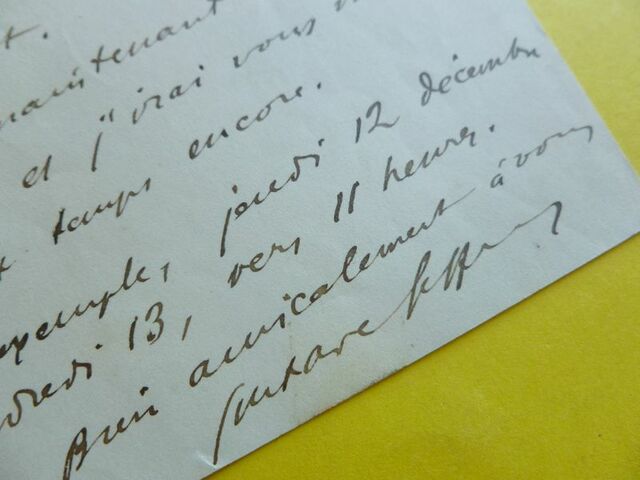 t.
maintenant
et j'irai vous
temps encore.
exemple, jeudi 12 décembre
dredi 13, vers 11 heures.
Bien amicalement à vous
Gustave Geffroy